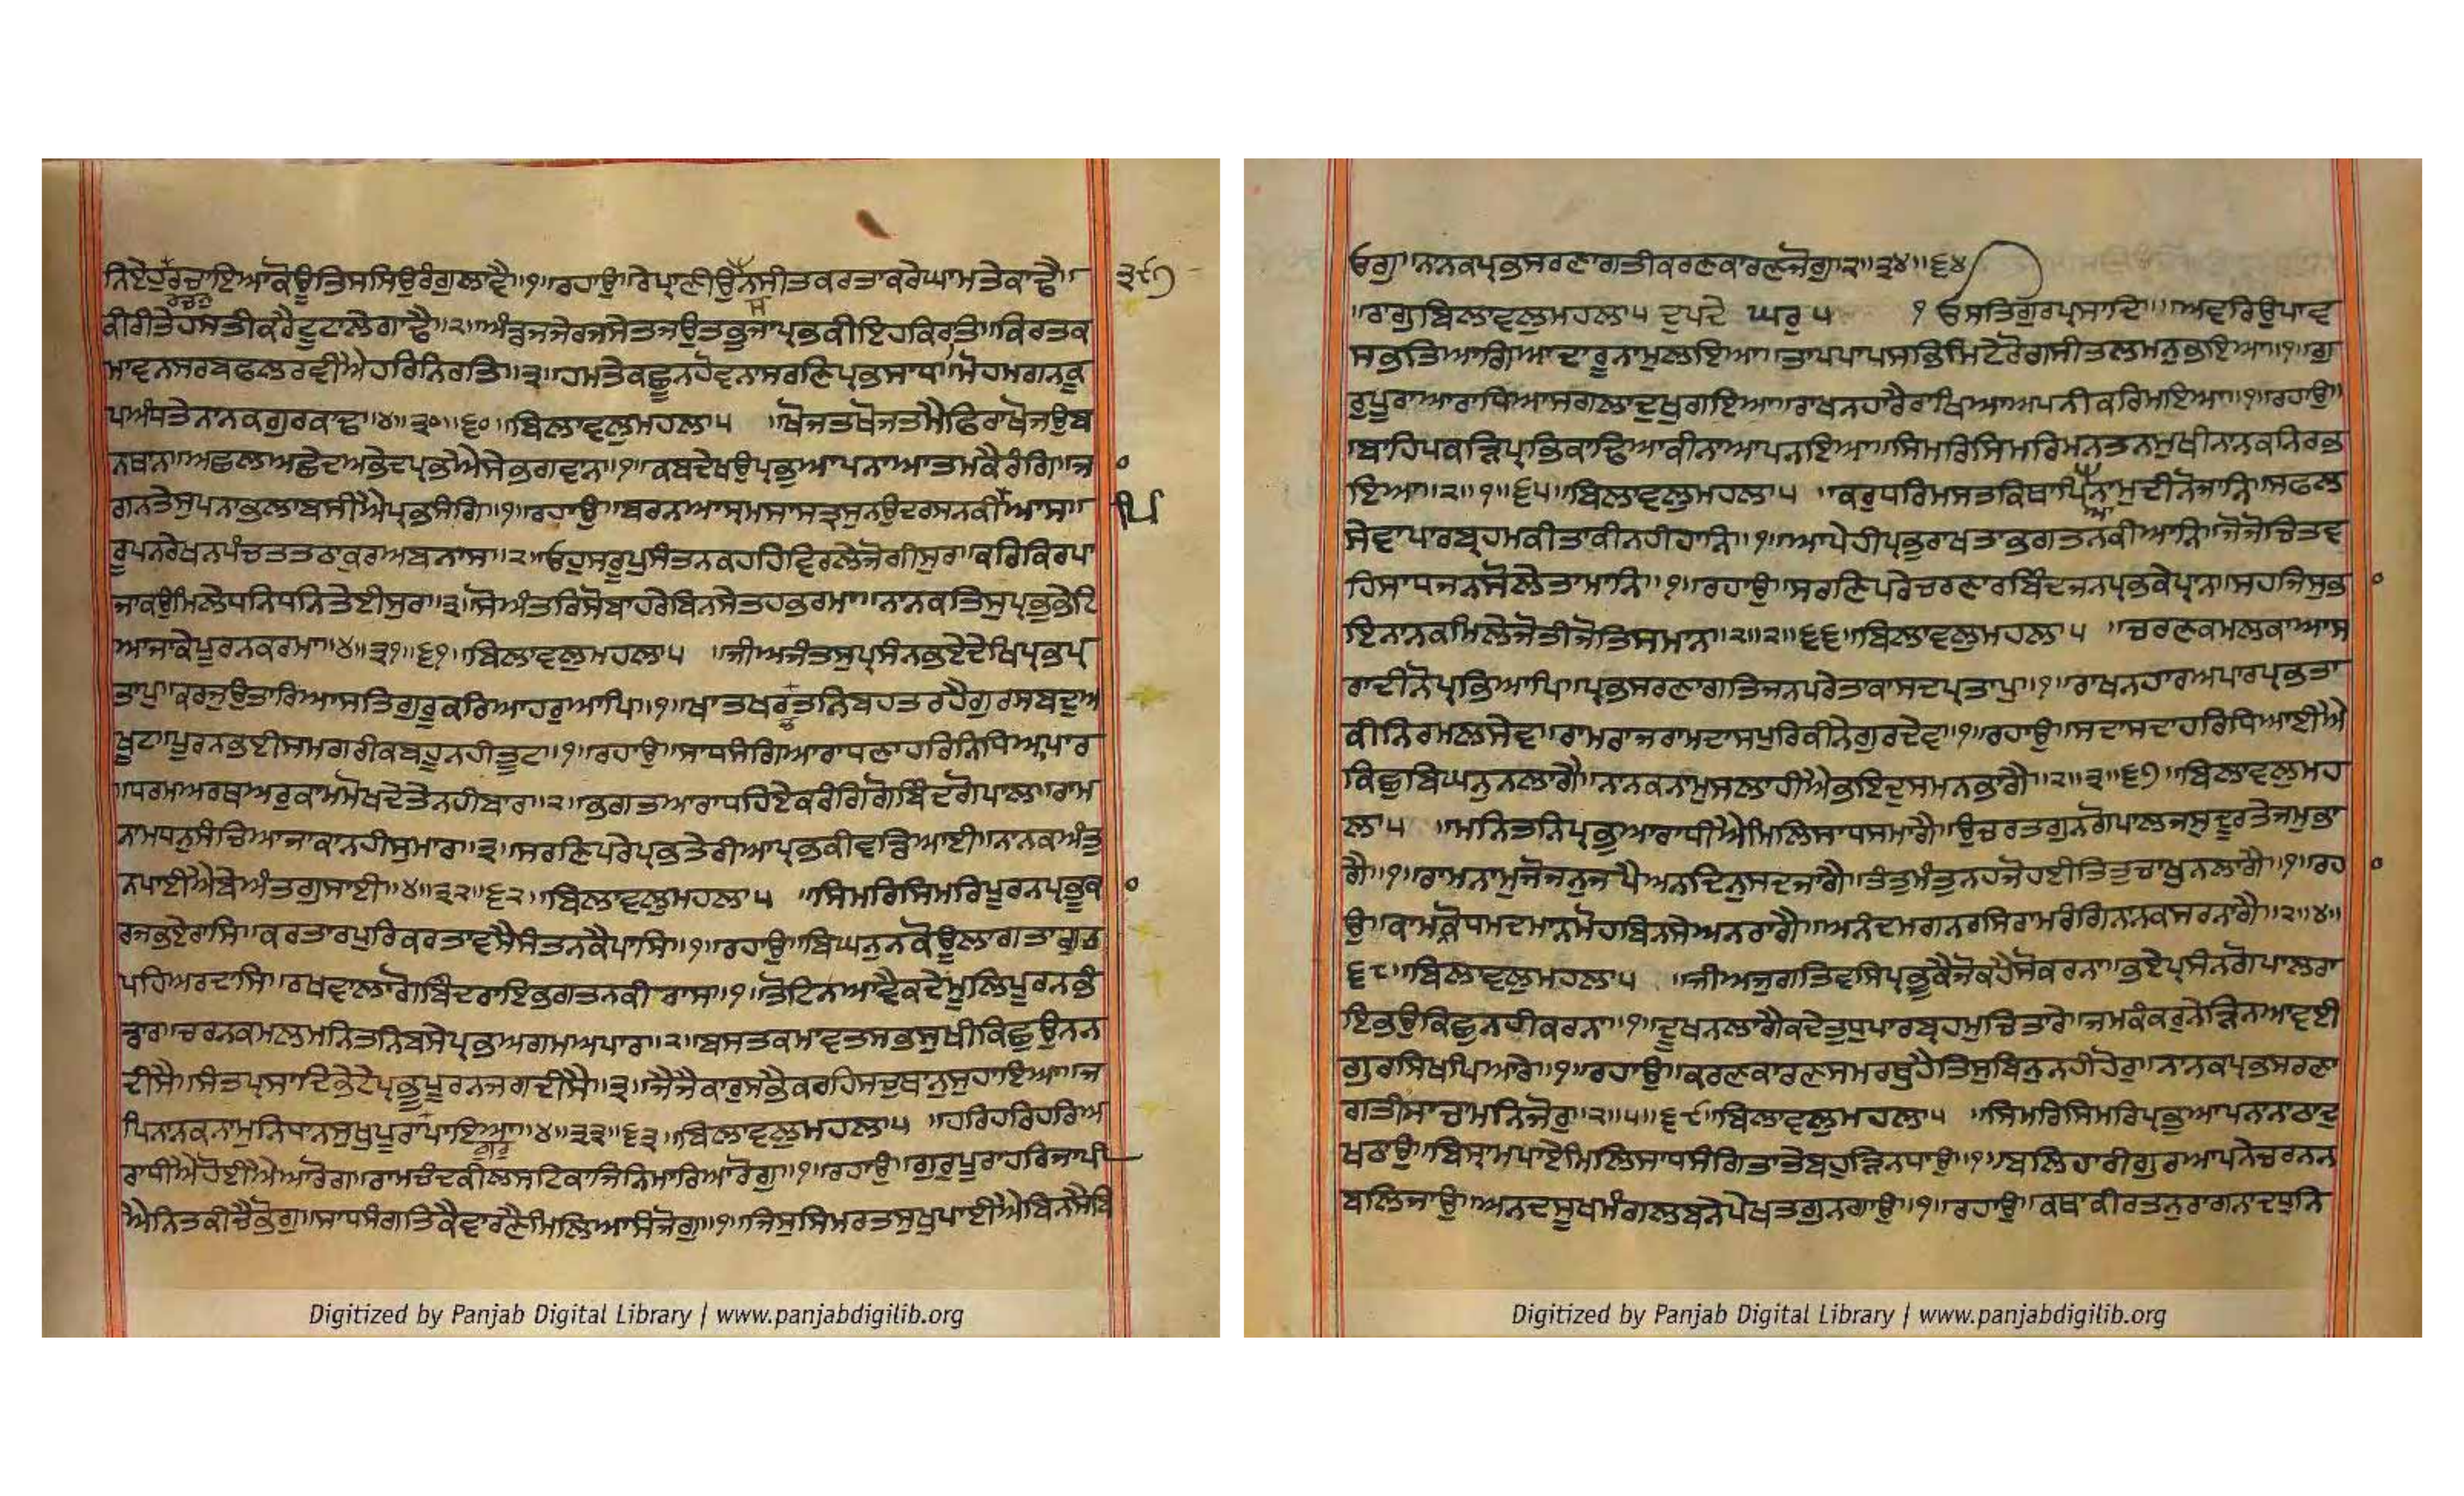 ਨਿਏਹੁਰਚਾਇਆਕੋਊਤਿਸਸਿਉਰੰਗੁਲਾਵੈ॥੧॥ਰਹਾਉ॥ਰੇਪ੍ਰਾਣੀਉਨਸੀਤਕਰਤਾਕਰੇਘਾਮਤੇਕਾਢੈ॥
੩੯੭
ਕੀਰੀਤੇਹਸਤੀਕਰੈਟੂਟਾਲੇਗਾਢੈ॥੨॥ਅੰਡਜਜੇਰਜਸੇਤਜਉਤਭੁਜਾਪ੍ਰਭਕੀਇਹਕਿਰਤਿ॥ਕਿਰਤਕ
ਮਾਵਨਸਰਬਫਲਰਵੀਐਹਰਿਨਿਰਤਿ॥੩॥ਹਮਤੇਕਛੂਨਹੋਵਨਾਸਰਣਿਪ੍ਰਭਸਾਧ॥ਮੋਹਮਗਨਕੂ
ਪਅੰਧਤੇਨਾਨਕਗੁਰਕਾਢ॥੪॥੩੦॥੬੦॥ਬਿਲਾਵਲੁਮਹਲਾ੫ ॥ਖੋਜਤਖੋਜਤਮੈਫਿਰਾਖੋਜਉਬ
ਨਥਾਨ॥ਅਛਲਅਛੇਦਅਭੇਦਪ੍ਰਭਐਸੇਭਗਵਾਨ॥੧॥ਕਬਦੇਖਉਪ੍ਰਭੁਆਪਨਾਆਤਮਕੈਰੰਗਿ॥ਜ
ਗਨਤੇਸੁਪਨਾਭਲਾਬਸੀਐਪ੍ਰਭਸੰਗਿ॥੧॥ਰਹਾਉ॥ਬਰਨਆਸ੍ਰਮਸਾਸਤ੍ਰਸੁਨਉਦਰਸਨਕੀਆਸ॥
ਰੂਪਨਰੇਖਨਪੰਚਤਤਠਾਕੁਰਅਬਨਾਸ॥੨॥ਓਹੁਸਰੂਪੁਸੰਤਨਕਹਹਿਵਿਰਲੇਜੋਗੀਸੁਰ॥ਕਰਿਕਿਰਪਾ
ਜਾਕਉਮਿਲੇਧਨਿਧਨਿਤੇਈਸੁਰ॥੩॥ਸੋਅੰਤਰਿਸੋਬਾਹਰੇਬਿਨਸੇਤਹਭਰਮਾ॥ਨਾਨਕਤਿਸੁਪ੍ਰਭੁਭੇਟਿ
ਆਜਾਕੇਪੂਰਨਕਰਮਾ॥੪॥੩੧॥੬੧॥ਬਿਲਾਵਲੁਮਹਲਾ੫ ॥ਜੀਅਜੰਤਸੁਪ੍ਰਸੰਨਭਏਦੇਖਿਪ੍ਰਭਪ੍ਰ
ਤਾਪ॥ਕਰਜੁਉਤਾਰਿਆਸਤਿਗੁਰੂਕਰਿਆਹਰੁਆਪਿ॥੧॥ਖਾਤਖਰਤਨਿਬਹਤਰਹੈਗੁਰਸਬਦੁਅ
ਖੂਟ॥ਪੂਰਨਭਈਸਮਗਰੀਕਬਹੂਨਹੀਤੂਟ॥੧॥ਰਹਾਉ॥ਸਾਧਸੰਗਿਆਰਾਧਣਾਹਰਿਨਿਧਿਅਪਾਰ
॥ਧਰਮਅਰਥਅਰੁਕਾਮਮੋਖਦੇਤੇਨਹੀਬਾਰ॥੨॥ਭਗਤਆਰਾਧਹਿਏਕਰੰਗਿਗੋਬਿੰਦਗੋਪਾਲ॥ਰਾਮ
ਨਾਮਧਨੁਸੰਚਿਆਜਾਕਾਨਹੀਸੁਮਾਰ॥੩॥ਸਰਣਿਪਰੇਪ੍ਰਭਤੇਰੀਆਪ੍ਰਭਕੀਵਡਿਆਈ॥ਨਾਨਕਅੰਤੁ
ਨਪਾਈਐਬੇਅੰਤਗੁਸਾਈ॥੪॥੩੨॥੬੨॥ਬਿਲਾਵਲੁਮਹਲਾ੫ ॥ਸਿਮਰਿਸਿਮਰਿਪੂਰਨਪ੍ਰਭੂਕਾ
ਰਜਭਏਰਾਸਿ॥ਕਰਤਾਰਪੁਰਿਕਰਤਾਵਸੈਸੰਤਨਕੈਪਾਸਿ॥੧॥ਰਹਾਉ॥ਬਿਘਨੁਨਕੋਊਲਾਗਤਾਗੁਰ
ਪਹਿਅਰਦਾਸਿ॥ਰਖਵਾਲਾਗੋਬਿੰਦਰਾਇਭਗਤਨਕੀਰਾਸਿ॥੧॥ਤੋਟਿਨਆਵੈਕਦੇਮੂਲਿਪੂਰਨਭੰ
ਡਾਰ॥ਚਰਨਕਮਲਮਨਿਤਨਿਬਸੇਪ੍ਰਭਅਗਮਅਪਾਰ॥੨॥ਬਸਤਕਮਾਵਤਸਭਸੁਖੀਕਿਛੁਊਨਨ
ਦੀਸੈ॥ਸੰਤਪ੍ਰਸਾਦਿਭੇਟੇਪ੍ਰਭੂਪੂਰਨਜਗਦੀਸੈ॥੩॥ਜੈਜੈਕਾਰੁਸਭੈਕਰਹਿਸਚੁਥਾਨੁਸੁਹਾਇਆ॥ਜ
ਪਿਨਾਨਕਨਾਮੁਨਿਧਾਨਸੁਖੁਪੂਰਾਪਾਇਆ॥੪॥੩੩॥੬੩॥ਬਿਲਾਵਲੁਮਹਲਾ੫ ॥ਹਰਿਹਰਿਹਰਿਅ
ਰਾਧੀਐਹੋਈਐਆਰੋਗ॥ਰਾਮਚੰਦਕੀਲਸਟਿਕਾਜਿਨਿਮਾਰਿਆਰੋਗੁ॥੧॥ਰਹਾਉ॥ਗੁਰੁਪੂਰਾਹਰਿਜਾਪੀ
ਐਨਿਤਕੀਚੈਭੋਗੁ॥ਸਾਧਸੰਗਤਿਕੈਵਾਰਣੈਮਿਲਿਆਸੰਜੋਗੁ॥੧॥ਜਿਸੁਸਿਮਰਤਸੁਖੁਪਾਈਐਬਿਨਸੈਬਿ
Digitized by Panjab Digital Library | www.panjabdigilib.org
ਓਗੁ॥ਨਾਨਕਪ੍ਰਭਸਰਣਾਗਤੀਕਰਣਕਾਰਣਜੋਗੁ॥੨॥੩੪॥੬੪॥
॥ਰਾਗੁਬਿਲਾਵਲੁਮਹਲਾ੫ ਦੁਪਦੇ ਘਰੁ ੫ ੧ ਓਸਤਿਗੁਰਪ੍ਰਸਾਦਿ॥ ॥ਅਵਰਿਉਪਾਵ
ਸਭਤਿਆਗਿਆਦਾਰੂਨਾਮੁਲਇਆ॥ਤਾਪਪਾਪਸਭਿਮਿਟੇਰੋਗਸੀਤਲਮਨੁਭਇਆ॥੧॥ਗੁ
ਰੁਪੂਰਾਆਰਾਧਿਆਸਗਲਾਦੁਖੁਗਇਆ॥ਰਾਖਨਹਾਰੈਰਾਖਿਆਅਪਨੀਕਰਿਮਇਆ॥੧॥ਰਹਾਉ॥
ਬਾਹਪਕੜਿਪ੍ਰਭਿਕਾਢਿਆਕੀਨਾਆਪਨਇਆ॥ਸਿਮਰਿਸਿਮਰਿਮਨਤਨਸੁਖੀਨਾਨਕਨਿਰਭ
ਇਆ॥੨॥੧॥੬੫॥ਬਿਲਾਵਲੁਮਹਲਾ੫ ॥ਕਰੁਧਰਿਮਸਤਕਿਥਾਪਿਨਾਮੁਦੀਨੋਜਾਨਿ॥ਸਫਲ
ਸੇਵਾਪਾਰਬ੍ਰਹਮਕੀਤਾਕੀਨਹੀਹਾਨਿ॥੧॥ਆਪੇਹੀਪ੍ਰਭੁਰਾਖਤਾਭਗਤਨਕੀਆਨਿ॥ਜੋਜੋਚਿਤਵ
ਹਿਸਾਧਜਨਸੋਲੇਤਾਮਾਨਿ॥੧॥ਰਹਾਉ॥ਸਰਣਿਪਰੇਚਰਣਾਰਬਿੰਦਜਨਪ੍ਰਭਕੇਪ੍ਰਾਨ॥ਸਹਜਿਸੁਭ
ਇਨਾਨਕਮਿਲੇਜੋਤੀਜੋਤਿਸਮਾਨ॥੨॥੨॥੬੬॥ਬਿਲਾਵਲੁਮਹਲਾ੫ ॥ਚਰਣਕਮਲਕਾਆਸ
ਰਾਦੀਨੋਪ੍ਰਭਿਆਪਿ॥ਪ੍ਰਭਸਰਣਾਗਤਿਜਨਪਰੇਤਾਕਾਸਦਪ੍ਰਤਾਪੁ॥੧॥ਰਾਖਨਹਾਰਅਪਾਰਪ੍ਰਭਤਾ
ਕੀਨਿਰਮਲਸੇਵ॥ਰਾਮਰਾਜਰਾਮਦਾਸਪੁਰਿਕੀਨੇਗੁਰਦੇਵ॥੧॥ਰਹਾਉ॥ਸਦਾਸਦਾਹਰਿਧਿਆਈਐ
ਕਿਛੁਬਿਘਨੁਨਲਾਗੈ॥ਨਾਨਕਨਾਮੁਸਲਾਹੀਐਭਇਦੁਸਮਨਭਾਗੈ॥੨॥੩॥੬੭॥ਬਿਲਾਵਲੁਮਹ
ਲਾ੫ ॥ਮਨਿਤਨਿਪ੍ਰਭੁਆਰਾਧੀਐਮਿਲਿਸਾਧਸਮਾਗੈ॥ਉਚਰਤਗੁਨਗੋਪਾਲਜਸੁਦੂਰਤੇਜਮੁਭਾ
ਗੈ॥੧॥ਰਾਮਨਾਮੁਜੋਜਨੁਜਪੈਅਨਦਿਨੁਸਦਜਾਗੈ॥ਤੰਤੁਮੰਤੁਨਹਜੋਹਈਤਿਤੁਚਾਖੁਨਲਾਗੈ॥੧॥ਰਹਾ
ਉ॥ਕਾਮਕ੍ਰੋਧਮਦਮਾਨਮੋਹਬਿਨਸੇਅਨਰਾਗੈ॥ਅਨੰਦਮਗਨਰਸਿਰਾਮਰੰਗਿਨਾਨਕਸਰਨਾਗੈ॥੨॥੪॥
੬੮॥ਬਿਲਾਵਲੁਮਹਲਾ੫ ॥ਜੀਅਜੁਗਤਿਵਸਿਪ੍ਰਭੂਕੈਜੋਕਹੈਸੋਕਰਨਾ॥ਭਏਪ੍ਰਸੰਨਗੋਪਾਲਰਾ
ਇਭਉਕਿਛੁਨਹੀਕਰਨਾ॥੧॥ਦੂਖਨਲਾਗੈਕਦੇਤੁਧੁਪਾਰਬ੍ਰਹਮੁਚਿਤਾਰੇ॥ਜਮਕੰਕਰੁਨੇੜਿਨਆਵਈ
ਗੁਰਸਿਖਪਿਆਰੇ॥੧॥ਰਹਾਉ॥ਕਰਣਕਾਰਣਸਮਰਥੁਹੈਤਿਸੁਬਿਨੁਨਹੀਹੋਰੁ॥ਨਾਨਕਪ੍ਰਭਸਰਣਾ
ਗਤੀਸਾਚਾਮਨਿਜੋਰੁ॥੨॥੫॥੬੯॥ਬਿਲਾਵਲੁਮਹਲਾ੫ ॥ਸਿਮਰਿਸਿਮਰਿਪ੍ਰਭੁਆਪਨਾਨਾਠਾਦੁ
ਖਠਾਉ॥ਬਿਸ੍ਰਾਮਪਾਏਮਿਲਿਸਾਧਸੰਗਿਤਾਤੇਬਹੁੜਿਨਧਾਉ॥੧॥ਬਲਿਹਾਰੀਗੁਰਆਪਨੇਚਰਨਨ
ਬਲਿਜਾਉ॥ਅਨਦਸੂਖਮੰਗਲਬਨੇਪੇਖਤਗੁਨਗਾਉ॥੧॥ਰਹਾਉ॥ਕਥਾਕੀਰਤਨੁਰਾਗਨਾਦਧੁਨਿ
Digitized by Panjab Digital Library | www.panjabdigilib.org